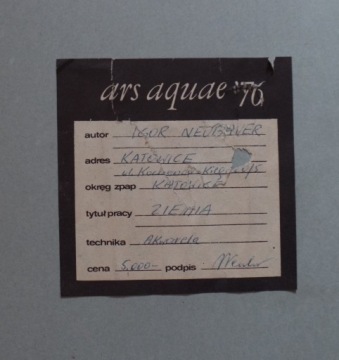 ars aquae '76
autor IGOR NEUBAUER
adres KATOWICE
ul.
okręg zpap KATOWICE
tytuł pracy ZIEMIA
technika Akwarela
cena 5.000- podpis